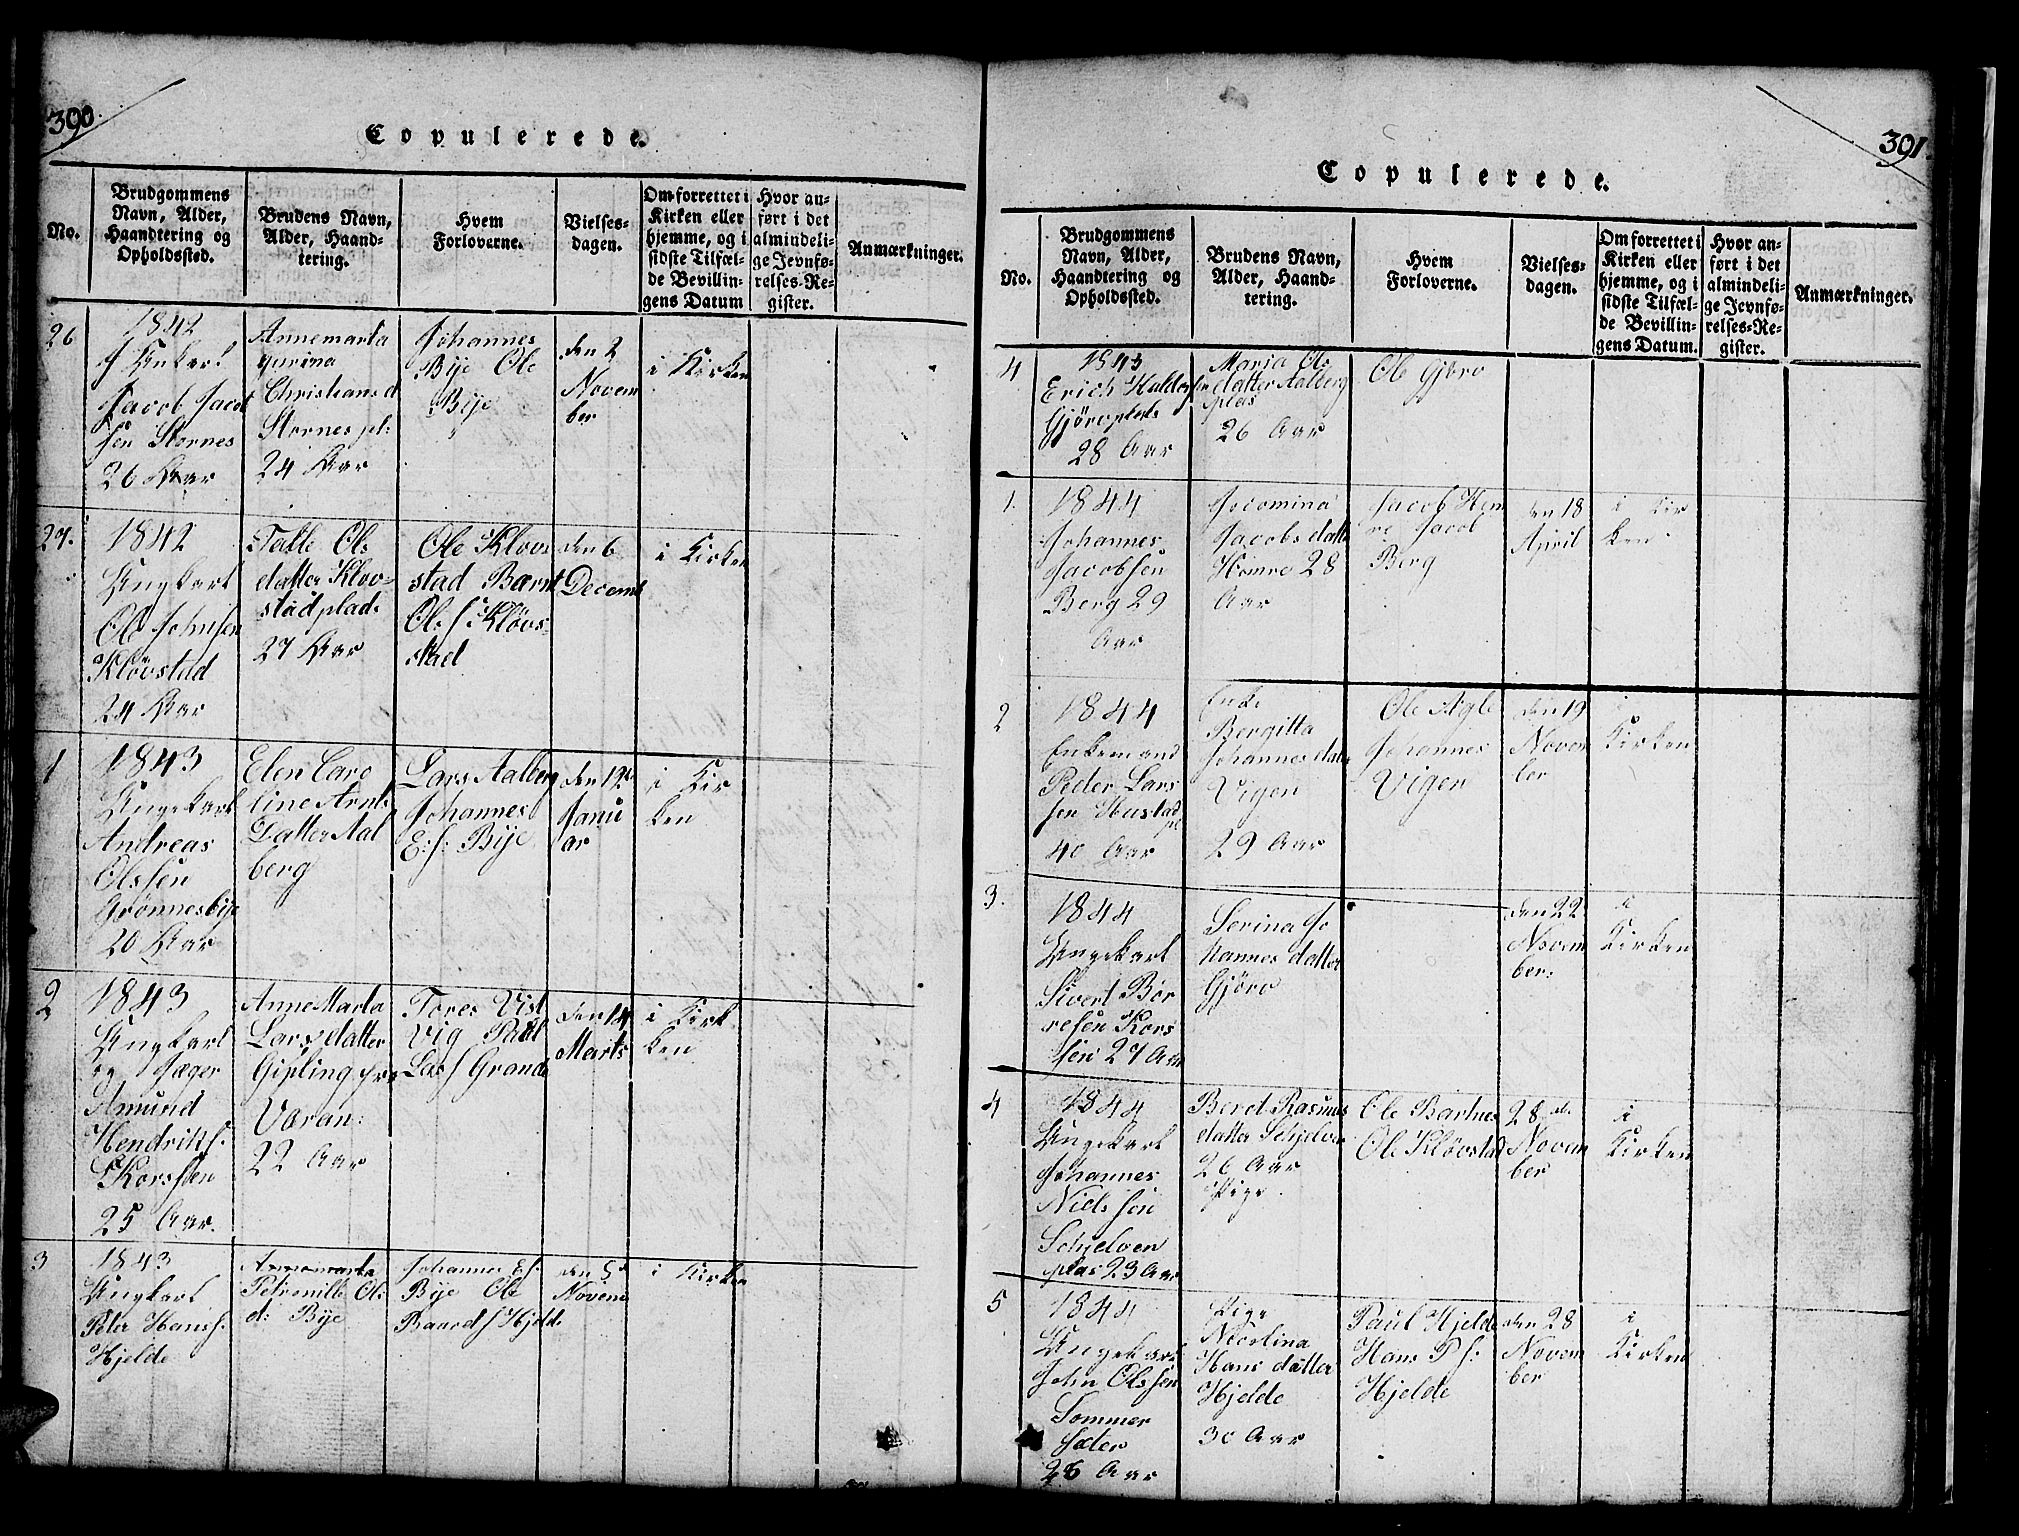 390.
Copulerede.
No.
Brudgommens
Navn, Alder,
Haandtering og
Opholdssted.
Brudens Navn,
Alder, Haand-
tering.
Hvem
Forloverne.
Vielses-
dagen.
Om forrettet i
Kirken eller
hjemme, og i
sidste Tilfæl-
de Bevillin-
gens Datum
Hvor an-
ført i det
almindeli-
ge Jevnfø-
relses-Re-
gister.
Anmærkninger.
26
1842
Jacob Jacob
sen Stornes
26 Aar
Annemarta
Christians d
Stornes pl:
24 Aar
Johannes
Bye Ole
Bye
den 2
Novem
ber
i Kirken
27.
1842
Ungkarl
Ole Johnsen
Kløvstad
24 Aar
Ols
datter Klov-
stadplads
27 Aar
Ole Klovs
stad Bærnt
Ols: Kløvs-
stad
den 6
Decemb
i Kirken
1
1843
Ungekarl
Andreas
Olssen
Grønnesbye
20 Aar
Elen Caro
line Arnts
Datter Aal
berg
Lars Aalberg
Johannes
E:s: Bye
den 19de
Janu
ar
i Kir
ken
2
1843
Ungkarl
og Jæger
Amund
Hendriks:
Korssen
25 Aar.
Anne Marta
Larsdatter
Gipling fra
Varan:
22 Aar
Tores Vist
Vig Paul
Lars Grande
den 14
Marts
i Kirk
ken
3
1843
Ungkarl
Peter Hanss:
Hjelde
Annemarta
Petronille Ols
d: Bye
Johannes Es:
Bye Ole
Baards Hjelde
den 5d
Novem
i Kirken
391
Copulerede.
No.
Brudgommens
Navn, Alder,
Haandtering og
Opholdssted.
Brudens Navn,
Alder, Haand-
tering.
Hvem
Forloverne.
Vielses-
dagen.
Om forrettet i
Kirken eller
hjemme, og i
sidste Tilfæl-
de Bevillin-
gens Datum.
Hvor an-
ført i det
almindeli-
ge Jevnfø-
relses-Re-
gister.
Anmærkninger.
4
1843
Erich Haldorsen
Gjørvplads
28 Aar
Maria Ols
datter Aalberg
plads
26 Aar
Ole Gjørv
1.
1844
Johannes
Jacobsen
Berg 29
Aar
Jocomina
Jacobsdatter
Homre 28
Aar
Jacob Hem
re Jacob
Berg
den 18
April
i Kir
ken
2
1844
Enkemand
Peder Lars
sen Hustad
pl
40 Aar
Enke
Bergitta
Johannesdatter
Vigen
29 Aar
Ole Aigle
Johannes
Vigen
den 19
Novem
ber
i
Kirken
3.
1844
Ungekarl
Sivert Bør
resen Kors
sen 27 Aar
Serina Jo
hannesdatter
Gjørv
den 22
Novem
ber:
i
Kirken
4
1844
Ungekarl
Johannes
Niels sen
Schjelven
plas 23 Aar
Beret Rasmus
datter Schjelven
26 Aar
Pige.
Ole Bartnes
Ole Kløvstad
28de
Novem
ber
i
Kirken
5
1844
Ungekarl
John Olssen
Sommer
sæter
28 Aar
Pige
Hans datter
Hjelde
30 Aar
Paul Hjelde
Hans P s:
Hjelde
den 28
Novem
ber
i
Kirken